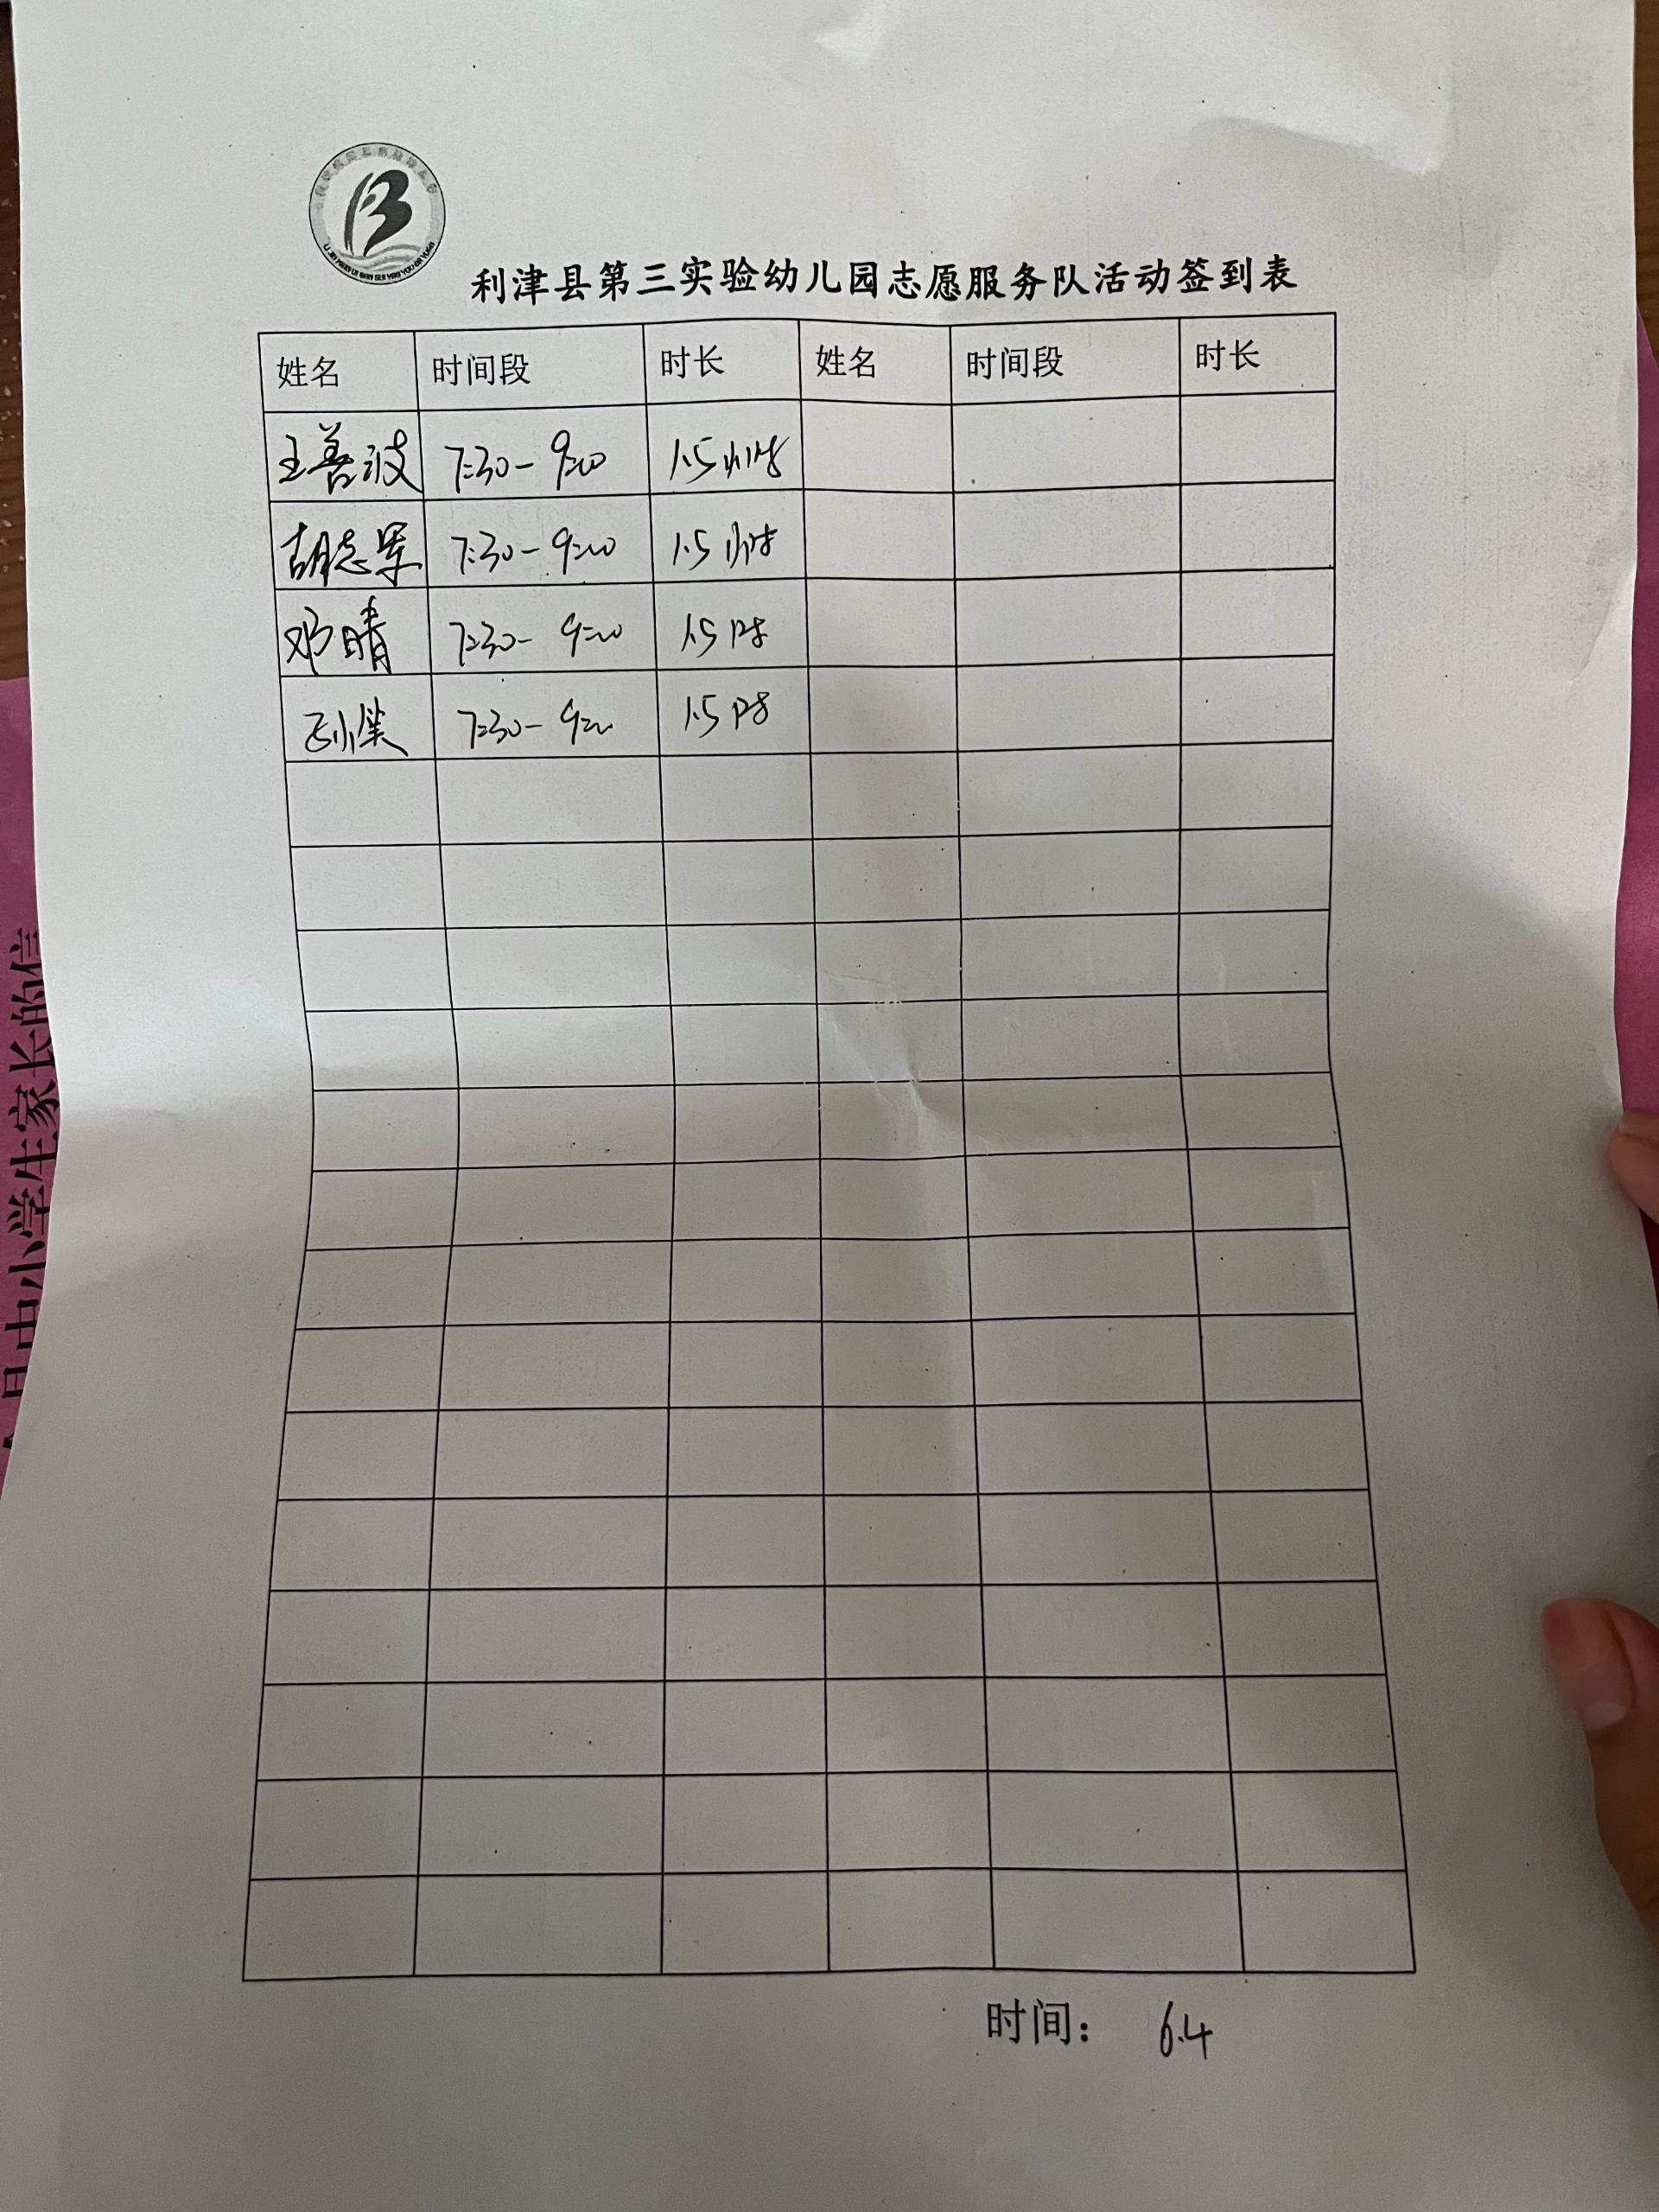 利津县第三实验幼儿园志愿服务队活动签到表
姓名 时间段 时长 姓名 时间段 时长
王善波 7:30-9:00 1.5小时
胡志军 7:30-9:00 1.5小时
邓晴 7:30-9:00 1.5时
7:30-9:00 1.5时
时间: 6.4
县中小学生家长的信